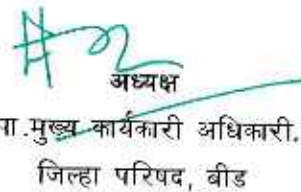 अध्यक्ष
मुख्य कार्यकारी अधिकारी.
जिल्हा परिषद, बीड